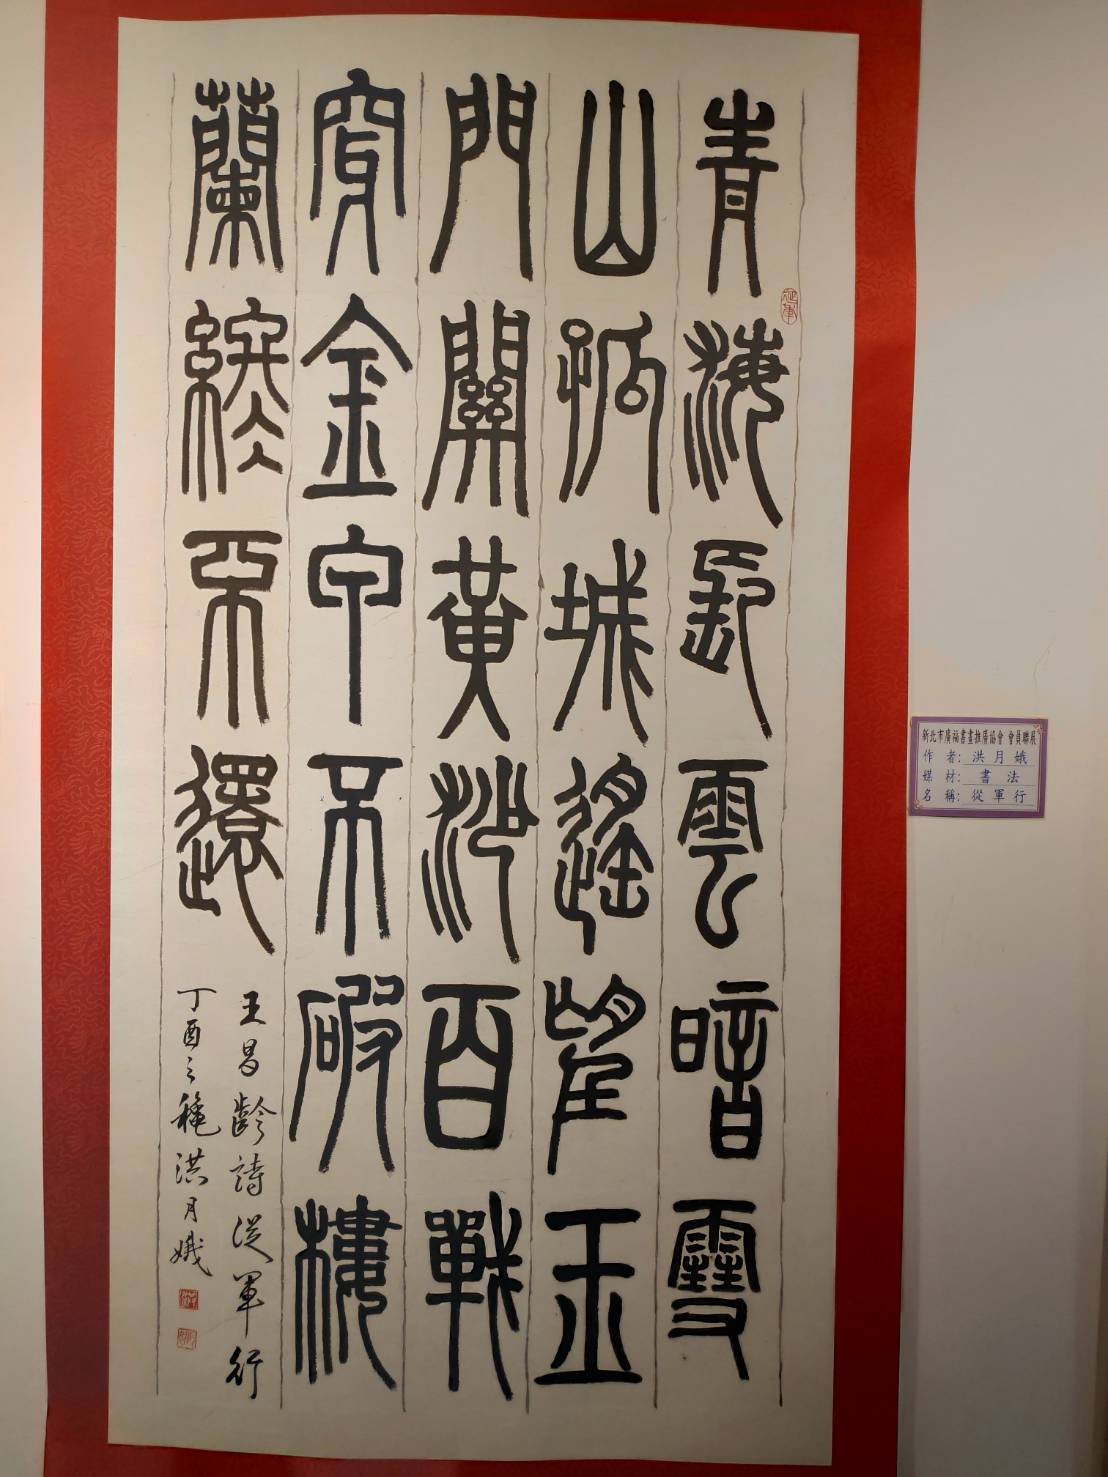 青海長雲暗雪
山孤城遙望玉
門關黃沙百戰
穿金甲不破樓
蘭終不還
王昌齡詩從軍行
丁酉之穐洪月娥
新北市廣福書畫推廣協會 會員聯展
作 者：洪月娥
媒 材：書法
名 稱：從軍行